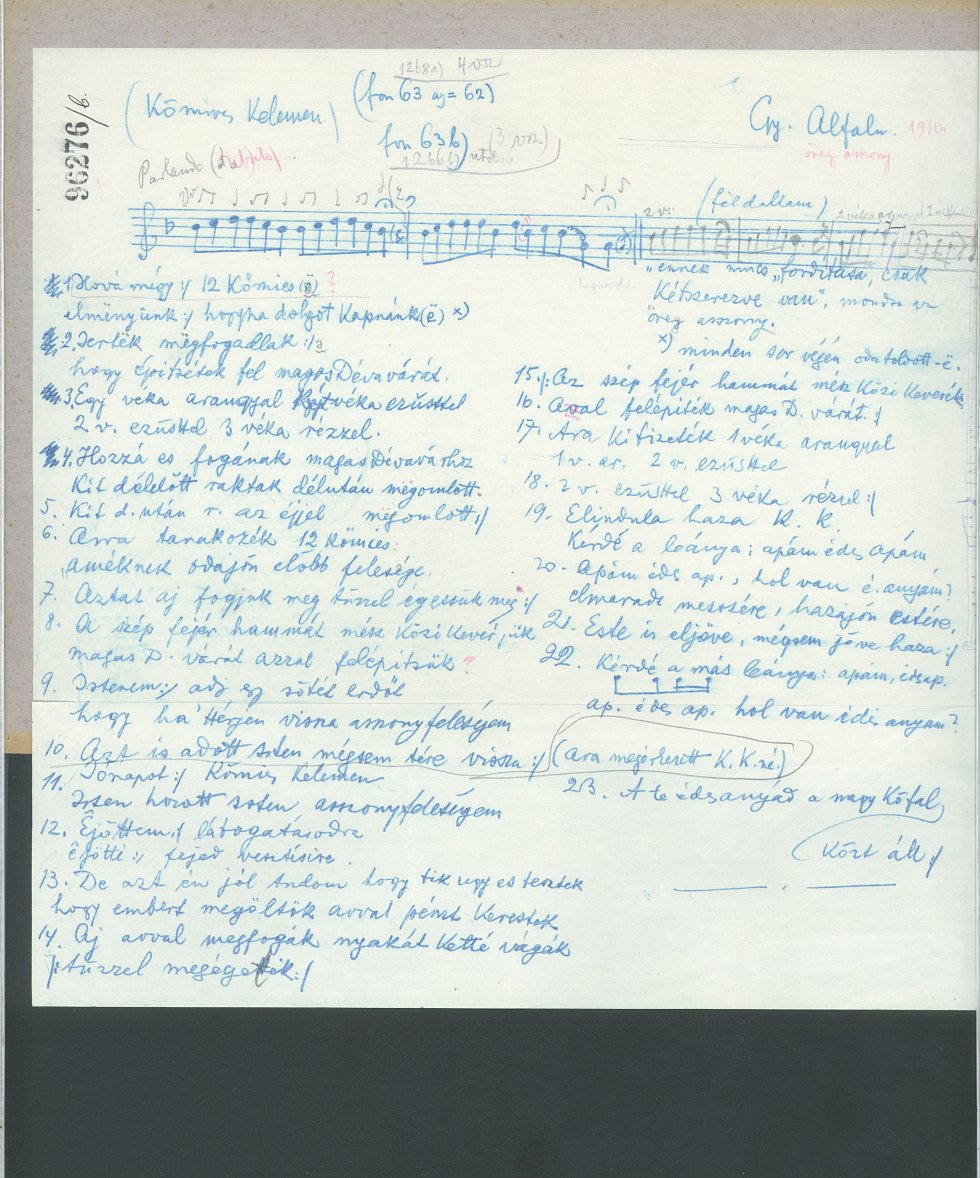 1268a) 4 vsz
(Kőmives Kelemen)
(fon 63 aj = 62)
fon 63 b) (3 vsz)
1266b)
Gy. Alfalu. 1910.
öreg asszony
96276/b.
Parlando (rubato)
(féldallam)
2 v.
"ennek nincs "fordítása", csak
kétszerezve van", mondta az
öreg asszony.
x) minden sor végén oda toldott -ë.
1. Hová mégy :/ 12 Kőmies (ë) ?
elményünk :/ hogyha dolgot kapnánk (ë) x)
2. Jertëk mëgfogadlak :/
hogy épitsétek fel magos Dévavárát.
3. Egy véka arannyal véka ezüsttel
2 v. ezüsttel 3 véka rézzel.
4. Hozzá es fogának magas Dévavárhoz
Kit délelőtt raktak délután mëgomlott.
5. Kit d. után r. az éjjel mëgomlott :/
6. Arra tanakozék 12 kőmies:
améknek odajön előbb felesége.
7. Aztat aj fogjuk meg tűzzel egessük meg :/
8. A szép fejér hammát mész közi keverjük
magas D. várát azzal felépitsük
9. Istenem :/ adj egy sötét erdőt
hogy ha térjen vissza asszonyfeleségem
10. Azt is adott Isten mégsem tére vissza :/ (arra megérkezett K. K.né.)
11. Jónapot :/ Kőmives Kelemen
Isten hozott Isten asszonyfeleségem
12. Ëjöttem :/ látogatásodra
ëjötté :/ fejed vesztésire.
13. De azt én jól tudom hogy tik ugy es tesztek
hogy embert megöltök avval pénzt kerestek
14. Aj avval megfogák nyakát ketté vágák
/: tűzzel megégeték :/
15. /: Az szép fejér hammát mész közi keverék
16. Aval felépiték magas D. várát :/
17. Arra kifizeték 1 véka arannyal
1 v. ar. 2 v. ezüsttel
18. 2 v. ezüsttel 3 véka rézzel :/
19. Elindula haza K. K.
kérdé a leánya: apám édes apám
20. Apám édes ap., hol van é. anyám?
elmaradt messzére, hazajön estére.
21. Este is eljöve, mégsem jöve haza :/
22. Kérdé a más leánya: apám, édesap.
ap. édes ap. hol van édes anyam?
23. A te édesanyád a nagy Kőfal
Közt áll :/